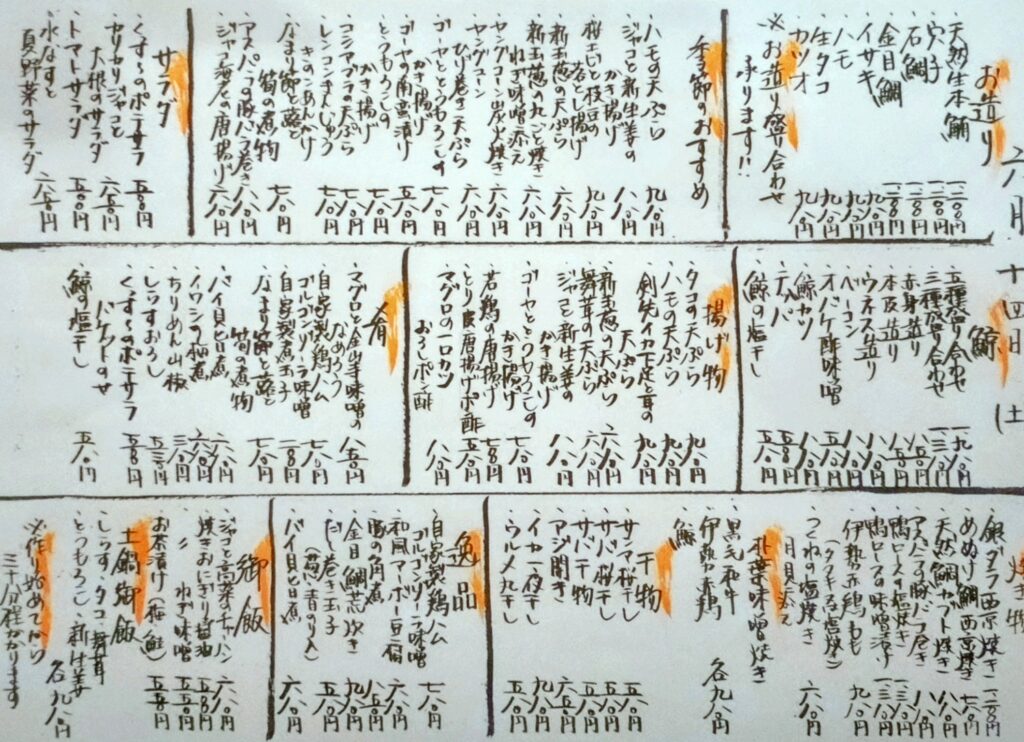 六月十四日(土)
お造り
・天然生本鮪 一二〇〇円
・穴子 一二〇〇円
・石鯛 一二〇〇円
・金目鯛 一二〇〇円
・イサキ 九八〇円
・ハモ 九八〇円
・生タコ 九八〇円
・カツオ 九八〇円
※お造り盛り合わせ
承ります!!
季節のおすすめ
・ハモの天ぷら 九八〇円
・ジャコと新生姜の
かき揚げ 八八〇円
・桜エビと枝豆の
かき揚げ 九八〇円
・新玉葱の天ぷら 六八〇円
・新玉葱の丸ごと焼き
ねぎ味噌添え
・ヤングコーン炭火焼き 六八〇円
・ヤングコーン
ひげ巻き天ぷら 六八〇円
・ゴーヤととうもろこしの
かき揚げ 七八〇円
・ゴーヤの南蛮漬け 五八〇円
・とうもろこしの
かき揚げ 八八〇円
・コシアブラの天ぷら 八八〇円
・レンコンまんじゅう
きのこあんかけ
・なまり節と蕗と
筍の煮物 七八〇円
・アスパラの豚バラ巻き 八八〇円
・ジャコ海老の唐揚げ 六八〇円
サラダ
・くすくすのポテサラ 五八〇円
・カリカリジャコと
大根のサラダ 六五〇円
・トマトサラダ 五八〇円
・水なすと
夏野菜のサラダ 六五〇円
鯨
・五種盛り合わせ 一九八〇円
・三種盛り合わせ 一三八〇円
・赤身造り
・本皮造り
・ウネス造り 八八〇円
・ベーコン
・オバケ酢味噌 五八〇円
・鯨カツ 八八〇円
・テッパ 五八〇円
・鯨の塩干し 五八〇円
揚げ物
・タコの天ぷら 九八〇円
・ハモの天ぷら 九八〇円
・剣先イカ下足と耳の
天ぷら 九八〇円
・新玉葱の天ぷら 六八〇円
・舞茸の天ぷら 六八〇円
・ジャコと新生姜の
かき揚げ 八八〇円
・ゴーヤととうもろこしの
かき揚げ 七八〇円
・若鶏の唐揚げ 七五〇円
・とり皮唐揚げポン酢 五八〇円
・マグロの一口カツ
おろしポン酢 八八〇円
肴
・マグロと金山寺味噌の
なめろう 八五〇円
・自家製鶏ハム
ゴルゴンゾーラ味噌 七八〇円
・自家製煮玉子 二八〇円
・なまり節と蕗と
筍の煮物 七八〇円
・バイ貝旨煮 六八〇円
・イワシの梅煮 六八〇円
・ちりめん山椒 三八〇円
・しらすおろし
・くすくすのポテサラ
バケットのせ 五八〇円
・鯨の塩干し 五八〇円
焼き物
・銀ダラ西京焼き 一二〇〇円
・めぬけ鯛西京焼き
・天然鯛カブト焼き
・アスパラ豚バラ巻き 八八〇円
・鴨ロースの塩焼き
・鴨ロースの味噌漬け 一三八〇円
・伊勢赤鶏もも
(タタキor塩焼) 九八〇円
・つくねの塩焼き
月見添え 六八〇円
朴葉味噌焼き
・黒毛和牛
・伊勢赤鶏
・鯨
各九八〇円
干物
・サンマ桜干し 五八〇円
・サバ桜干し 五八〇円
・サバ干物 五八〇円
・アジ開き 五八〇円
・イカ一夜干し 九八〇円
・ウルメ丸干し 五八〇円
逸品
・自家製鶏ハム
ゴルゴンゾーラ味噌 七八〇円
・和風マーボー豆腐 六八〇円
・豚の角煮 八五〇円
・金目鯛芯炊き
・だし巻き玉子
(葱・青のり入)
・バイ貝旨煮 六八〇円
御飯
・ジャコと高菜のチャーハン 六八〇円
・焼きおにぎり醤油 五五〇円
・〃 ねぎ味噌 五五〇円
・お茶漬け(梅・鮭) 五五〇円
土鍋御飯
・しらす、タコ、舞茸
・とうもろこし、新生姜
各九八〇円
※作り始めてから
三十分程かかります